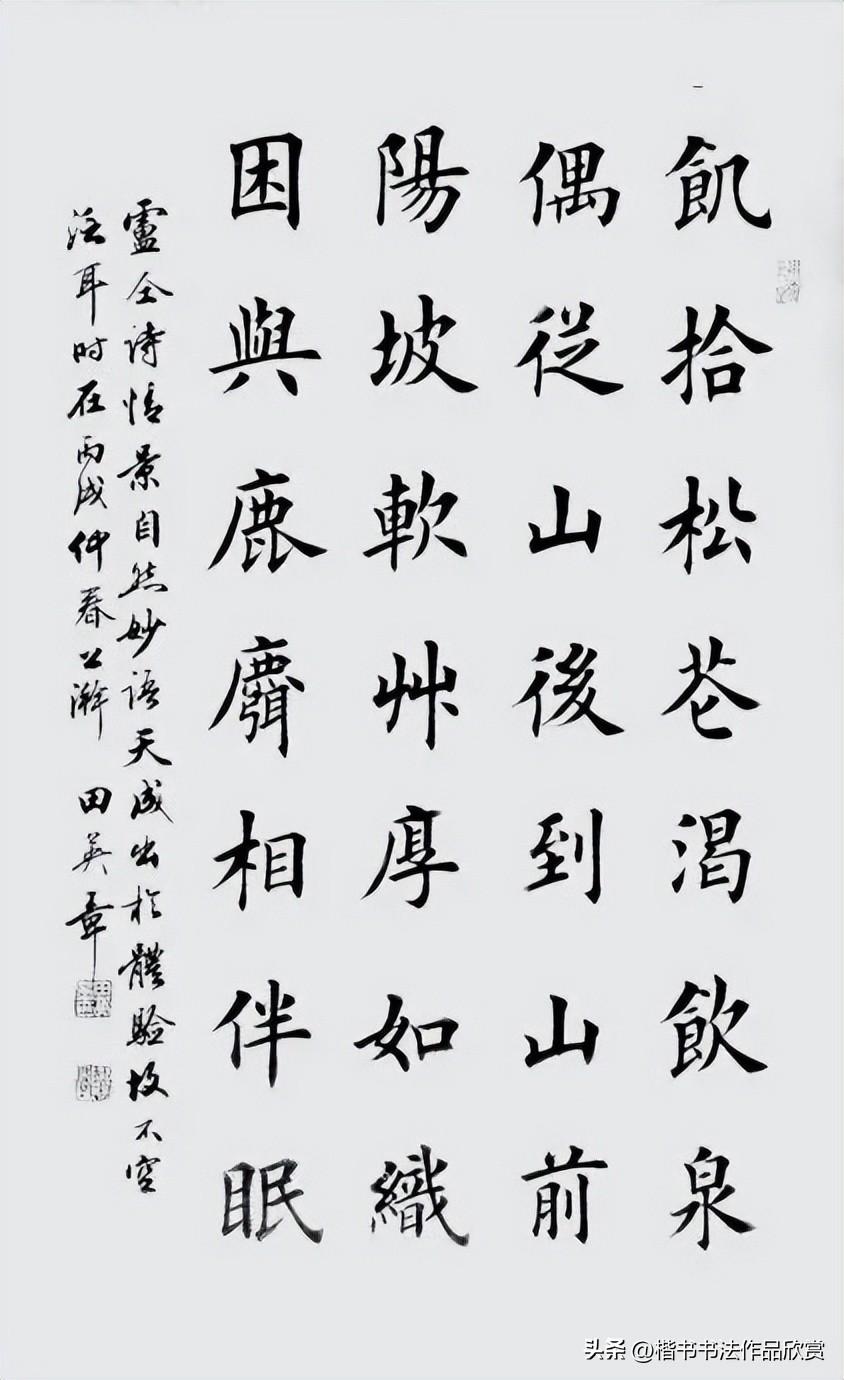 飢拾松花渴飲泉
偶從山後到山前
陽坡軟艸厚如織
困與鹿麛相伴眠
盧仝詩情景自然妙語天成出於體驗故不空
泛耳時在丙戌仲春以澣 田英章
头条 @楷书书法作品欣赏